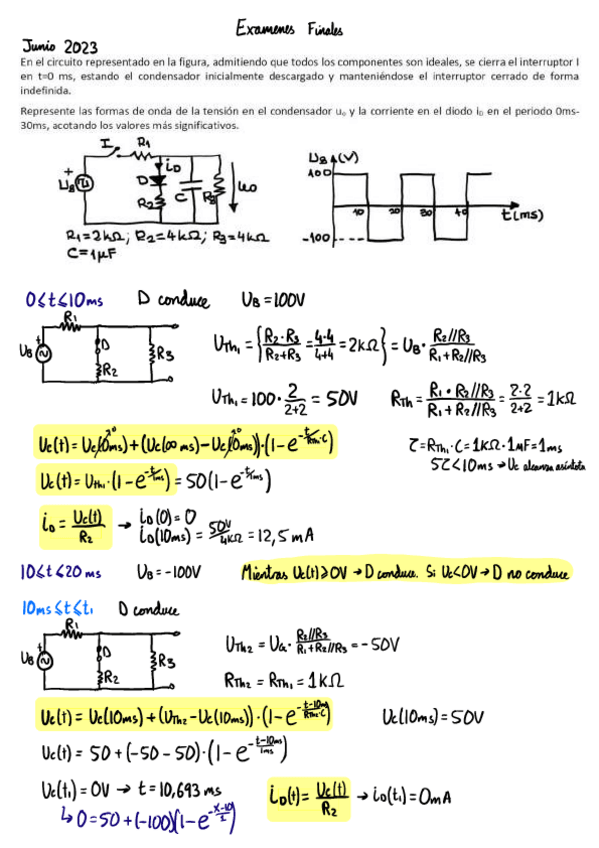 Examenes Finales
Junio 2023
En el circuito representado en la figura, admitiendo que todos los componentes son ideales, se cierra el interruptor I
en t=0 ms, estando el condensador inicialmente descargado y manteniéndose el interruptor cerrado de forma
indefinida.
Represente las formas de onda de la tensión en el condensador u₀ y la corriente en el diodo i_D en el periodo 0ms-
30ms, acotando los valores más significativos.
I R1 iD
+ UB D R2 C R3 uo
UB (V)
100
10 20 30 40 t(ms)
-100
R1=2kΩ; R2=4kΩ; R3=4kΩ
C=1μF
0≤t≤10ms D conduce UB=100V
R1
UB D R2 R3
UTh1 = {R2·R3/(R2+R3) = 4·4/(4+4) = 2kΩ} = UB · R2//R3/(R1+R2//R3)
UTh1 = 100 · 2/(2+2) = 50V RTh = R1·R2//R3/(R1+R2//R3) = 2·2/(2+2) = 1kΩ
Uc(t) = Uc(0ms) + (Uc(∞ ms) - Uc(0ms))·(1-e^(-t/(RTh1·C)))
τ=RTh1·C=1kΩ·1μF=1ms
5τ<10ms → Uc alcanza asíntota
Uc(t) = UTh1·(1-e^(-t/1ms)) = 50(1-e^(-t/1ms))
iD = Uc(t)/R2 → iD(0)=0
iD(10ms) = 50V/4kΩ = 12,5 mA
10≤t≤20 ms UB=-100V Mientras Uc(t)≥0V → D conduce. Si Uc<0V → D no conduce
10ms≤t≤t1 D conduce
R1
UB D R2 R3
UTh2 = UG · R2//R3/(R1+R2//R3) = -50V
RTh2 = RTh1 = 1kΩ
Uc(t) = Uc(10ms) + (UTh2-Uc(10ms))·(1-e^(-(t-10ms)/(RTh2·C))) Uc(10ms)=50V
Uc(t) = 50+(-50-50)·(1-e^(-(t-10ms)/1ms))
Uc(t1)=0V → t=10,693 ms iD(t) = Uc(t)/R2 → iD(t1)=0mA
↳ 0=50+(-100)(1-e^(-(x-10)/1))